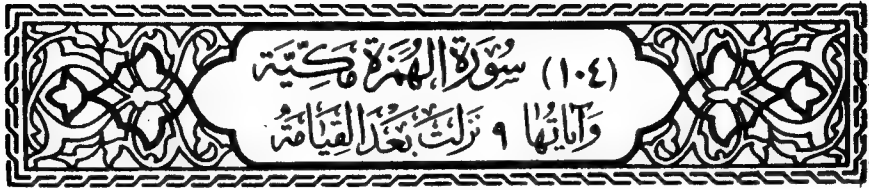 (١٠٤) سُورَةُ الهُمَزَة مَكِّيَّة
وَآيَاتُهَا ٩ نَزَلَتْ بَعْدَ القِيَامَةِ